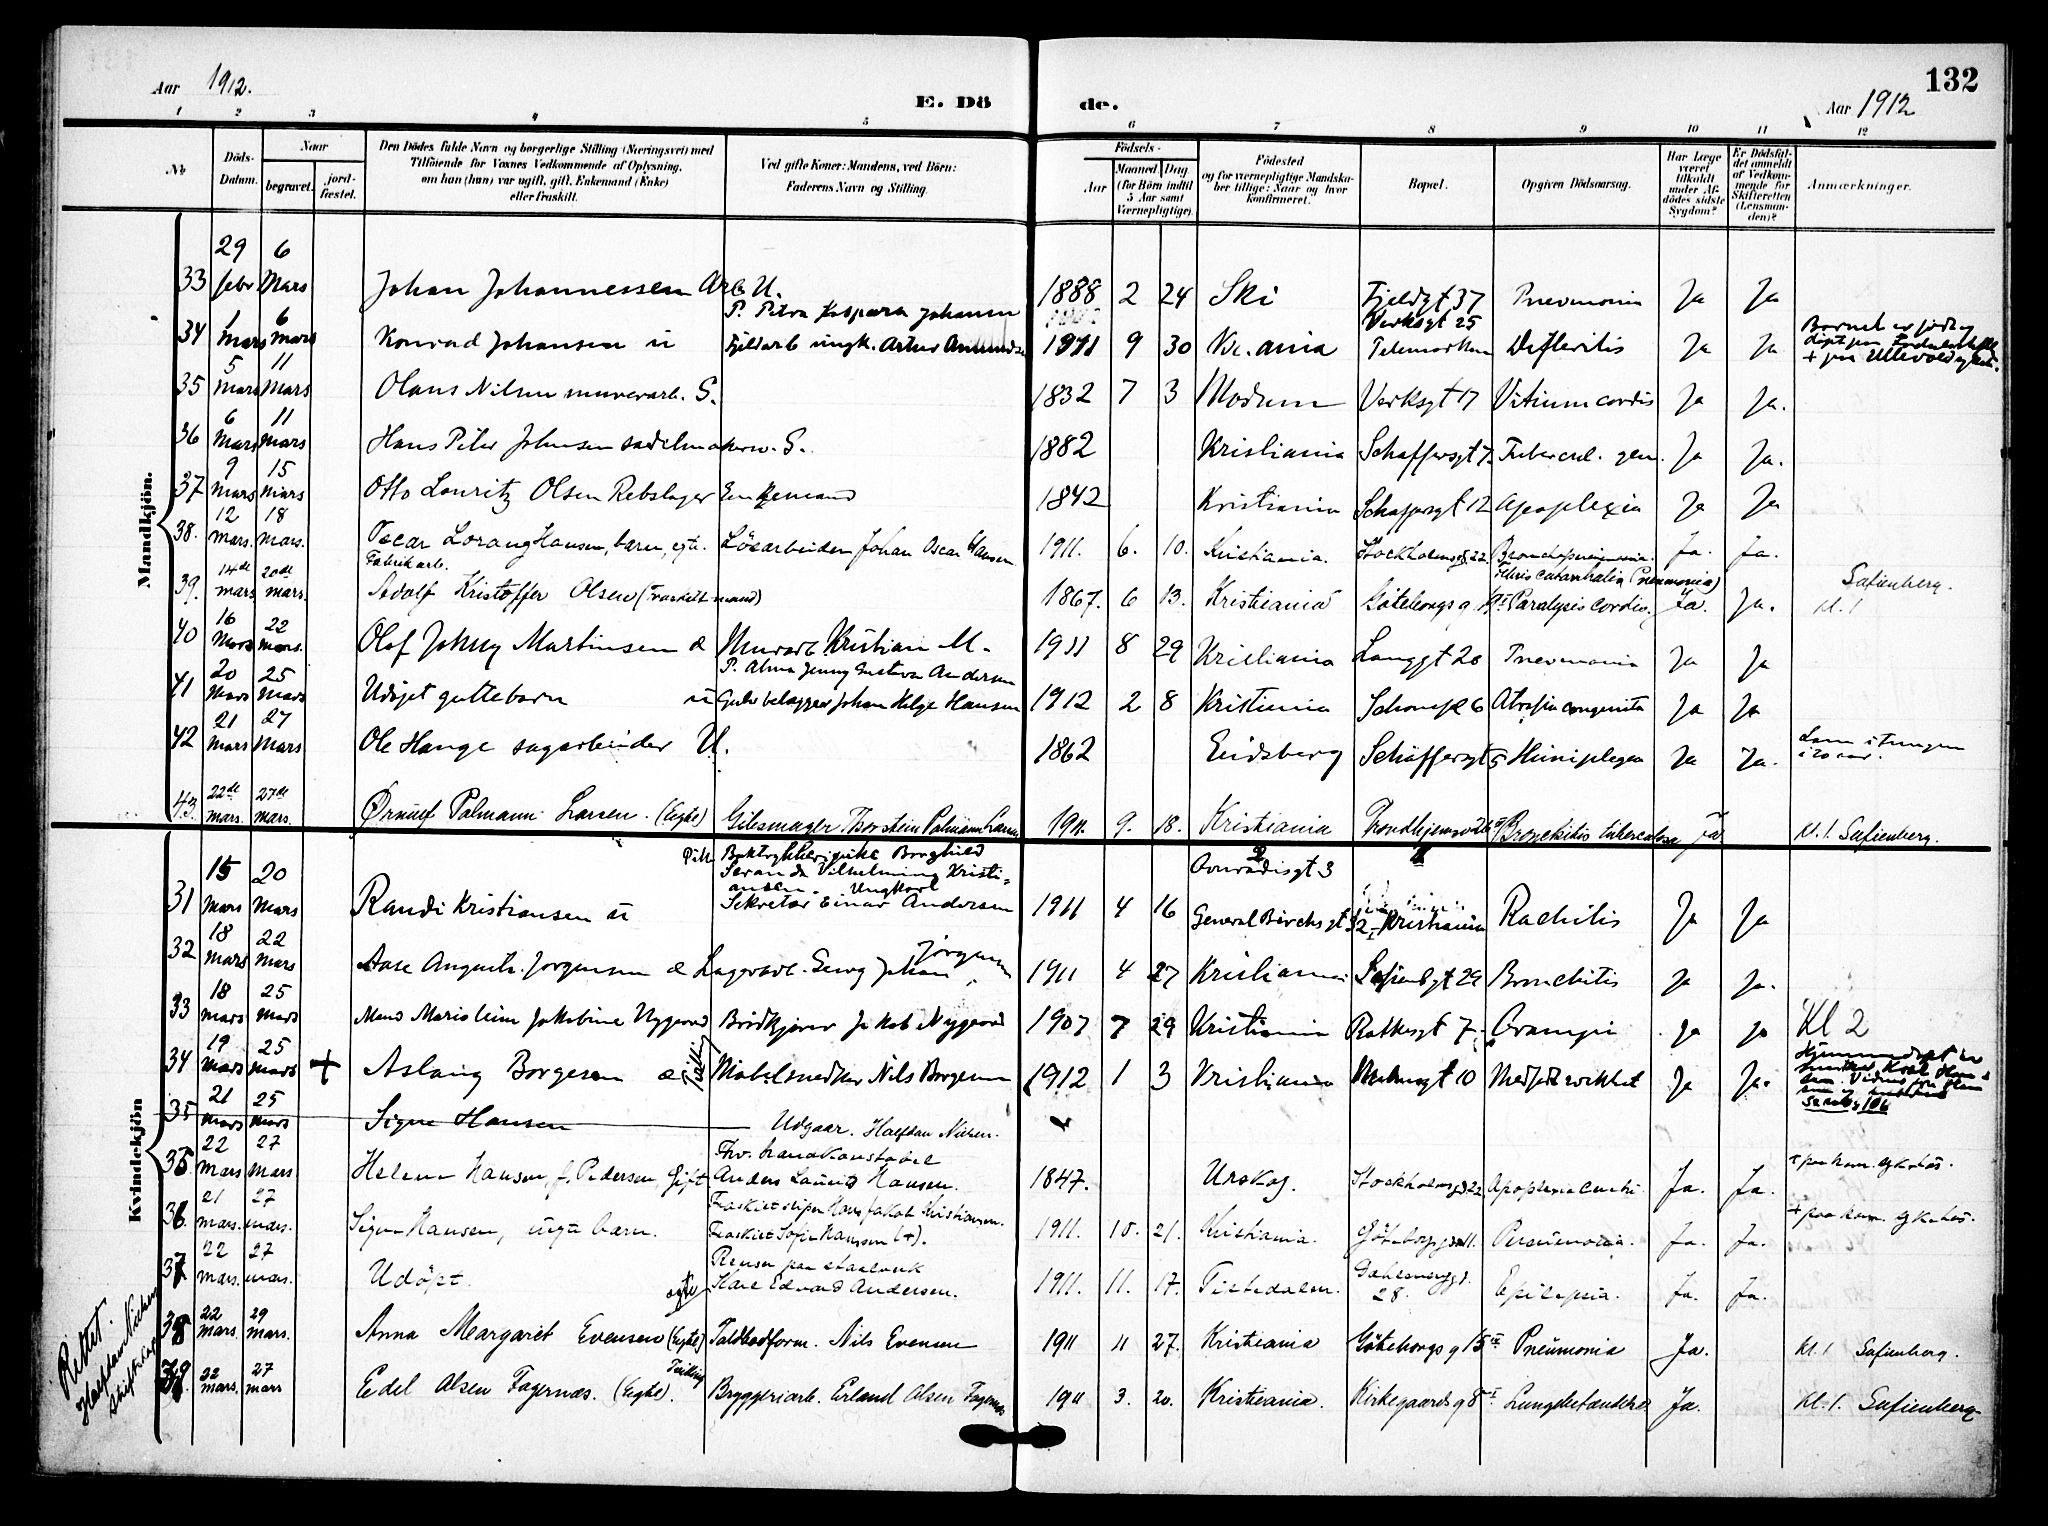 132
Aar 1912.
E. Dö de.
Aar 1912
1 2 3 4 5 6 7 8 9 10 11 12
No
Döds-Datum.
Naar
begravet.
jord-fæstet.
Den Dödes fulde Navn og borgerlige Stilling (Næringsvei) med
Tilföiende for Voxnes Vedkommende af Oplysning,
om han (hun) var ugift, gift, Enkemand (Enke)
eller fraskilt.
Ved gifte Koner: Mandens, ved Börn:
Faderens Navn og Stilling.
Födsels-
Aar
Maaned
Dag
(for Börn indtil
5 Aar samt
Værnepligtige).
Födested
og for værnepligtige Mandska-
ber tillige: Naar og hvor
konfirmeret.
Bopæl.
Opgiven Dödsaarsag.
Har Læge
været
tilkaldt
under Af-
dödes sidste
Sygdom?
Er Dödsfal-
det anmeldt
af Vedkom-
mende for
Skifteretten
(Lensman-
den)?
Anmærkninger.
Mandkjön.
33 29 febr 6 Mars Johan Johannessen Arb U. 1888 2 24 Ski Fjeldgt 37 Pnevmonia Ja Ja
P. Petra Kaspara Johansen Verksgt 25
34 1 Mars 6 Mars Konrad Johansen u Fjeldarb ungk. Artur 1911 9 30 Kr.ania Telemarken Difteritis Ja Ja
35 5 Mars 11 Mars Olaus Nilsen murerarb. G. 1832 7 3 Modum Verksgt 17 Vitium cordis Ja Ja.
36 6 Mars 11 Mars Hans Peter Johnsen sadelmakersv. G. 1882 Kristiania Schaffersgt 7. Tubercul. gen. Ja Ja.
37 9 Mars 15 Mars Otto Lauritz Olsen Rebslager Enkemand 1842 Kristiania Schaffersgt 12 Apoplexia Ja Ja
38. 12 mars. 18 mars. Oscar Lorang Hansen, barn, egte. Lösarbeider Johan Oscar Hansen 1911. 6. 10. Kristiania. Stockholmsgd 22. Bronchopneumonia. Ja. Ja.
Fabrikarb. Febris catarrhalia (Pneumonia)
39. 14de mars. 20de mars. Adolf Kristoffer Olsen (Fraskilt mand) 1867. 6 13. Kristiania Göteborgs g. Paralysis cordis. Ja. Ja. Kl. 1 Sofienberg.
40 16 Mars 22 mars. Olaf Johny Martinsen e Murarb Kristian M. 1911 8 29 Kristiania Langgt 20 Pnevmonia Ja Ja
P. Alma Jenny Gustava Andersen
41 20 Mars 25 Mars Udöpt guttebarn u Gulvbelægger Johan Helge Hansen 1912 2 8 Kristiania 6 Atrofia congenita Ja Ja
42 21 Mars 27 Mars Ole Hange sagarbeider U. 1862 Eidsberg Schäffersgt 5 Hemiplegia Ja Ja. Lam i tungen
i 20 aar.
43. 22de mars. 27de mars. Ørnulf Palmann Larsen. (Egte) Thorstein Palmann Larsen 1911. 9. 18. Kristiania Trondhjemsv Bronchitis tuberculosa Ja Kl. 1. Sofienberg.
Kvindekjön
31 15 Mars 20 Mars Randi Kristiansen u 1911 4 16 General Birchs gt Kristiania Rachitis Ja Ja
Pike Boktrykkeripike Borghild
Seranda Vilhelmine Kristi-
ansen. Ungkarl
Sekretær Einar Andersen
32 18 Mars 22 Mars Aase Augusta Jørgensen e Lagerarb. Georg Johan Jørgensen 1911 4 27 Kristiania Sofienbgt 29 Bronchitis Ja Ja.
33 18 mars 25 mars Jakobine Nygaard Brödkjører Jakob Nygaard 1907 7 29 Kristiania Rathkesgt 7. Ja Ja Kl 2
34 19 Mars 25 Mars + Aslaug Borgesen e Tvilling Møbelsnedker Nils Borgesen 1912 1 3 Kristiania 10 Medfødt svakhet Ja Ja.
35 21 mars 25 Mars Signe Hansen Udgaar. Halfdan Nielsen.
35 22 Mars 27 Mars Helene Hansen, f. Pedersen, Gift Fhv. havnekonstabel
Anders Laurits Hansen. 1847. Urskog. Stockholmsgd 22 Apoplexia cerebri. Ja. Ja. + paa kom. sykehus.
36. 21 mars. 27 mars. Signe Hansen, uegte barn. Fraskilt sliper Hans Jakob Kristiansen.
Fraskilt Sofie Hansen (+). 1911. 10. 21. Kristiania. Göteborggd 11. Pneumonia. Ja. Ja. + paa kom. sykehus.
37 22 mars. 27 mars. Udöpt. egte Renser paa staalverk
Karl Edvard Andersen. 1911. 11. 17. Tistedalen. 28. Epilepsia. Ja. Ja.
38 22 mars. 29 mars. Anna Margaret Evensen (Egte) Toldbedform. Nils Evensen 1911 11 27. Kristiania Göteborgs g 15 Pneumonia Ja. Kl. 1 Sofienberg.
39. 22 mars. 27 mars Edel Alsen Fagernæs. (Egte). Tvilling Bryggeriarb. Erland Alsen Fagernæs 1911 3. 20. Kristiania. Kirkegaards g 8 Lungebetændelse Ja. Kl. 1. Sofienberg
Rettet.
Halfdan Nielsen